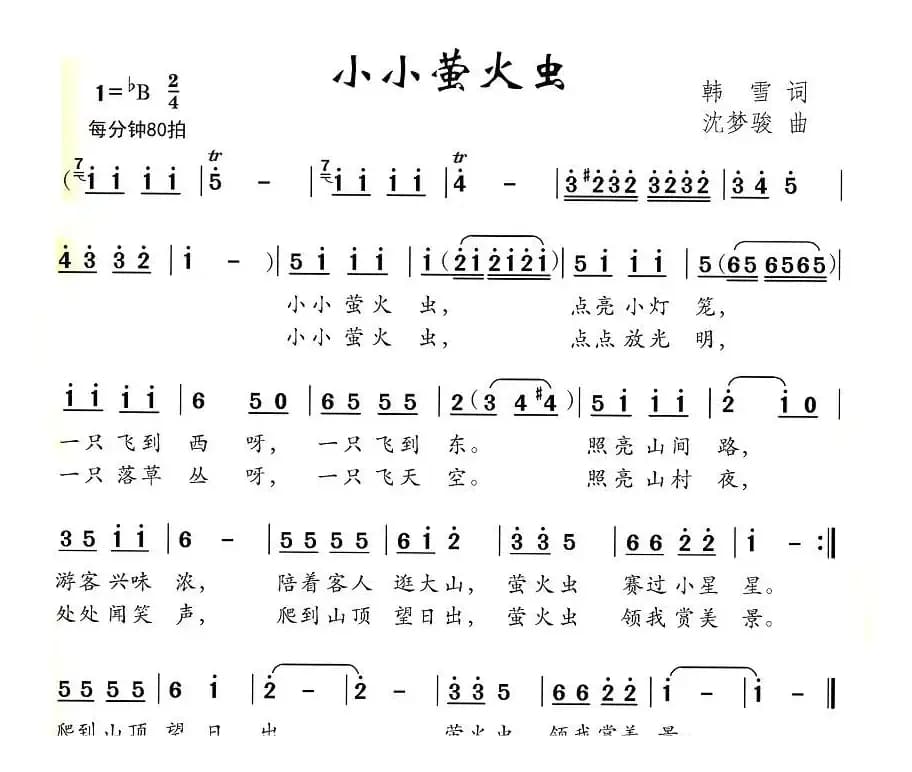 小小萤火虫
1=♭B 2/4
韩 雪 词
每分钟80拍
沈梦骏 曲
(7 i i i i | tr 5 - | 7 i i i i | tr 4 - | 3 #2 3 2 3 2 3 2 | 3 4 5 |
4 3 3 2 | i - ) | 5 i i i | i ( 2 i 2 i 2 i ) | 5 i i i | 5 ( 6 5 6 5 6 5 ) |
小小萤火 虫, 点亮小灯 笼,
小小萤火 虫, 点点放光 明,
i i i i | 6 5 0 | 6 5 5 5 | 2 ( 3 4 #4 ) | 5 i i i | 2 i 0 |
一只飞到 西 呀, 一只飞到 东。 照亮山间 路,
一只落草 丛 呀, 一只飞天 空。 照亮山村 夜,
3 5 i i | 6 - | 5 5 5 5 5 5 5 | 6 i 2 | 3 3 5 | 6 6 2 2 | i - :||
游客兴味 浓, 陪着客人 逛大山, 萤火虫 赛过小星 星。
处处闻笑 声, 爬到山顶 望日出, 萤火虫 领我赏美 景。
5 5 5 5 | 6 i | 2 - | 2 - | 3 3 5 | 6 6 2 2 | i - | i - ||
爬到山顶 望 日 出 萤火虫 领我赏美 景